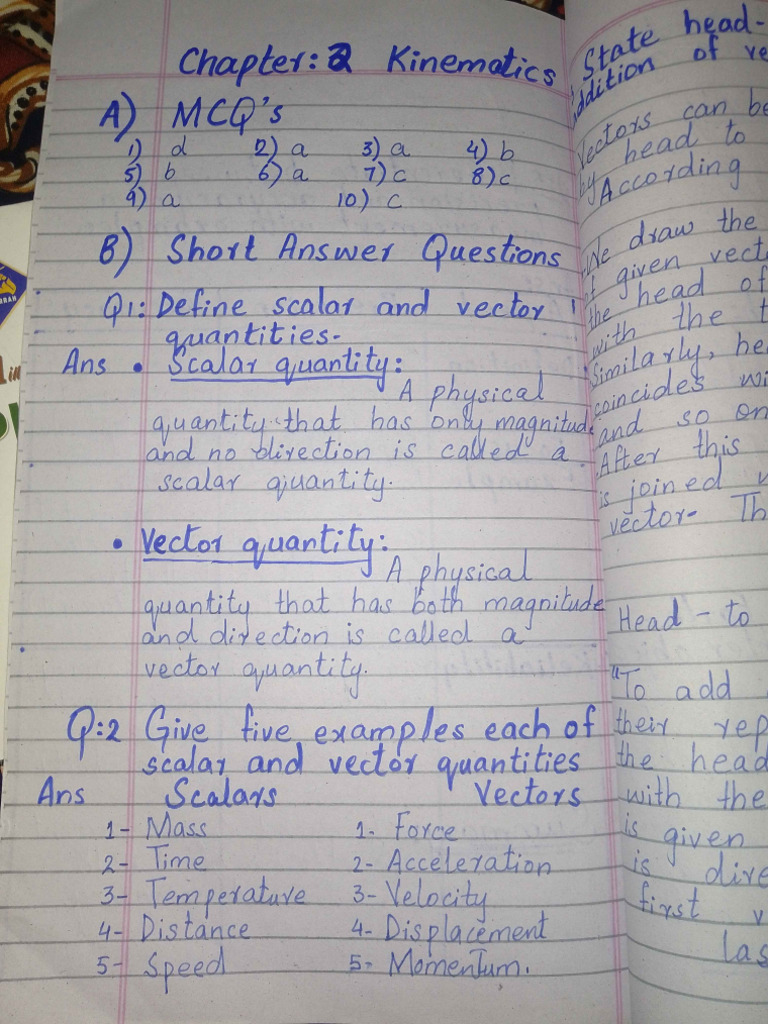 Chapter: 2 Kinematics
A) MCQ's
1) d 2) a 3) a 4) b
5) b 6) a 7) c 8) c
9) a 10) c
B) Short Answer Questions
Q1: Define scalar and vector
quantities.
Ans • Scalar quantity:
A physical
quantity that has only magnitude
and no direction is called a
scalar quantity.
• Vector quantity:
A physical
quantity that has both magnitude
and direction is called a
vector quantity.
Q:2 Give five examples each of
scalar and vector quantities
Ans Scalars Vectors
1- Mass 1- Force
2- Time 2- Acceleration
3- Temperature 3- Velocity
4- Distance 4- Displacement
5- Speed 5- Momentum.
State head-
addition of ve
Vectors can be
by head to
According
We draw the
of given vect
the head of
with the t
Similarly, he
coincides wi
and so on
After this
is joined
vector- Th
Head - to
"To add
their rep
the head
with the
is given
is dire
first v
las